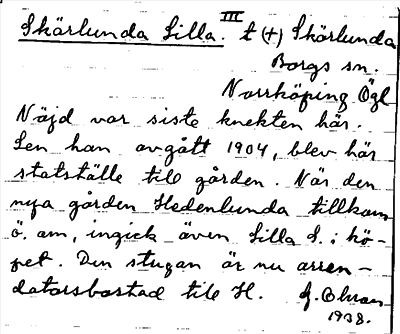 Skärlunda Lilla. III t (+) Skärlunda
Borgs sn.
Norrköping Ögl
Nöjd var siste knekten här.
Sen han avgått 1904, blev här
statställe till gården. När den
nya gården Hedenlunda tillkom
ö. om, ingick även Lilla S. i kö-
pet. Den stugan är nu arren-
datorsbostad till H.
1938.